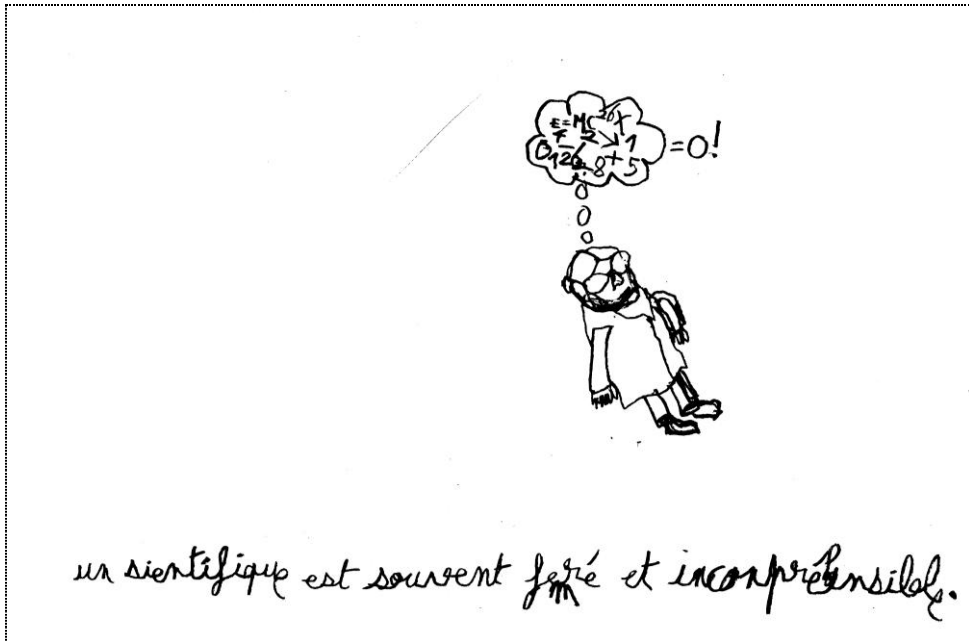 E=MC
=0!
8+5
un sientifique est souvent fermé et inconpréhensible.